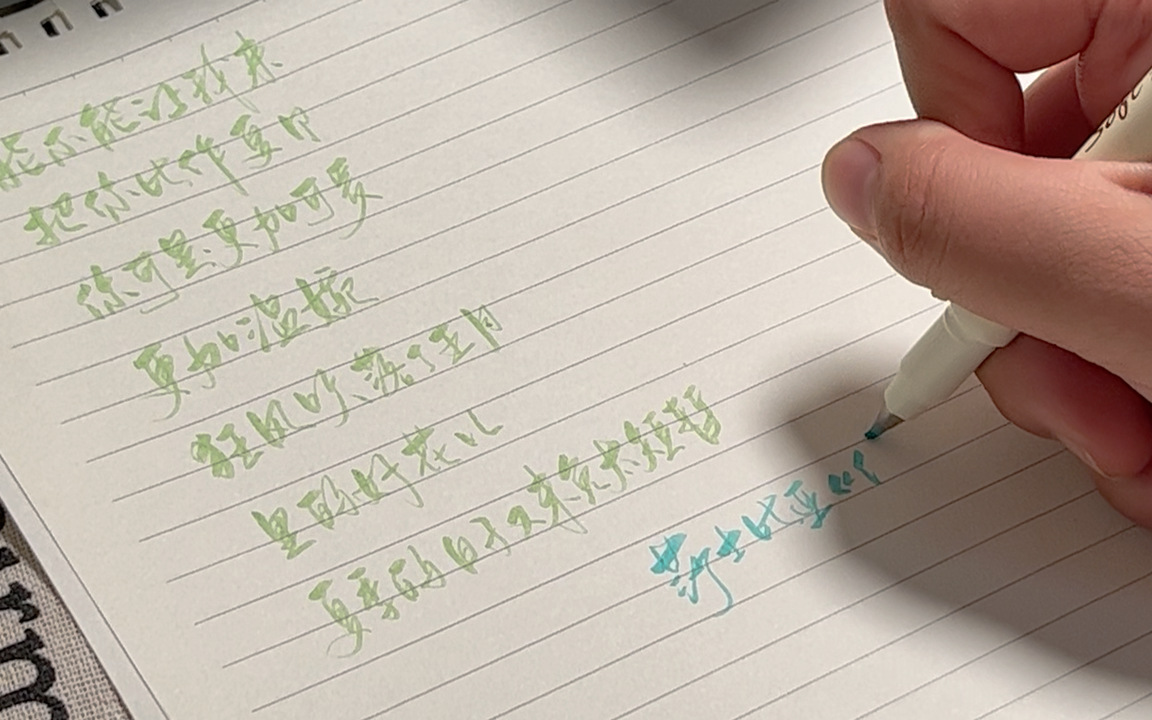 能不能让我来
把你比作夏日
你可是更加可爱
更加温婉
狂风吹落了五月
里的好花儿
夏季的日子又未免太短暂
莎士比亚《